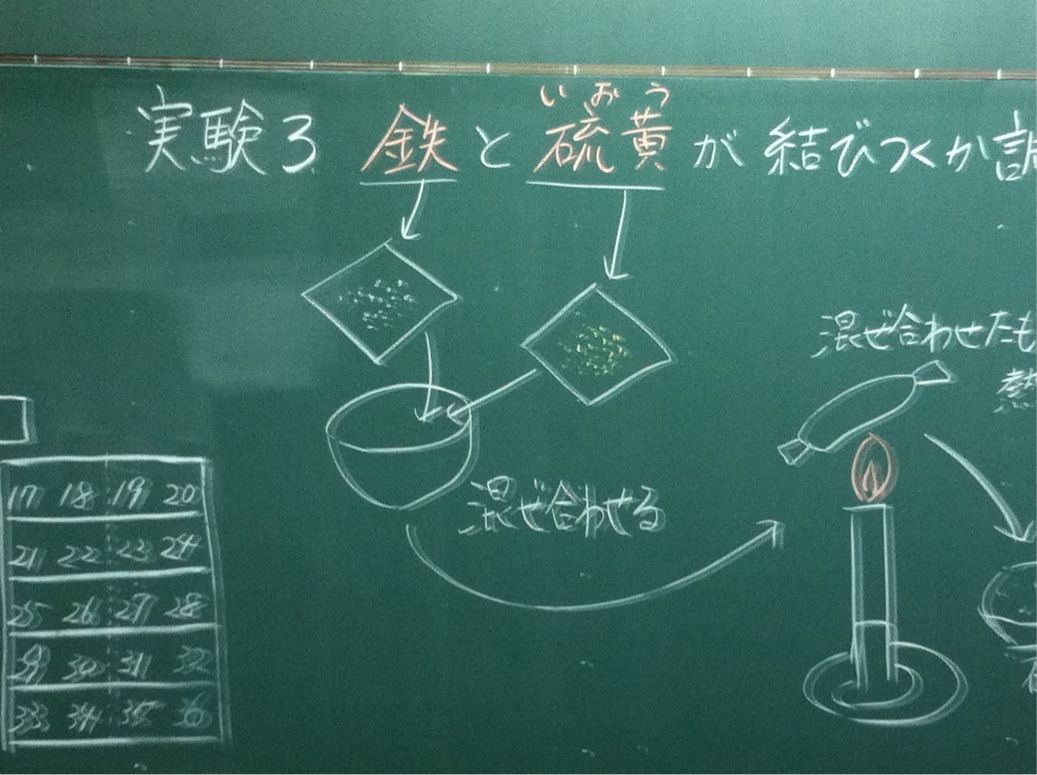 いおう
実験3 鉄と硫黄が結びつくか調
混ぜ合わせたも
熱
混ぜ合わせる
17 18 19 20
21 22 23 24
25 26 27 28
29 30 31 32
33 34 35 36